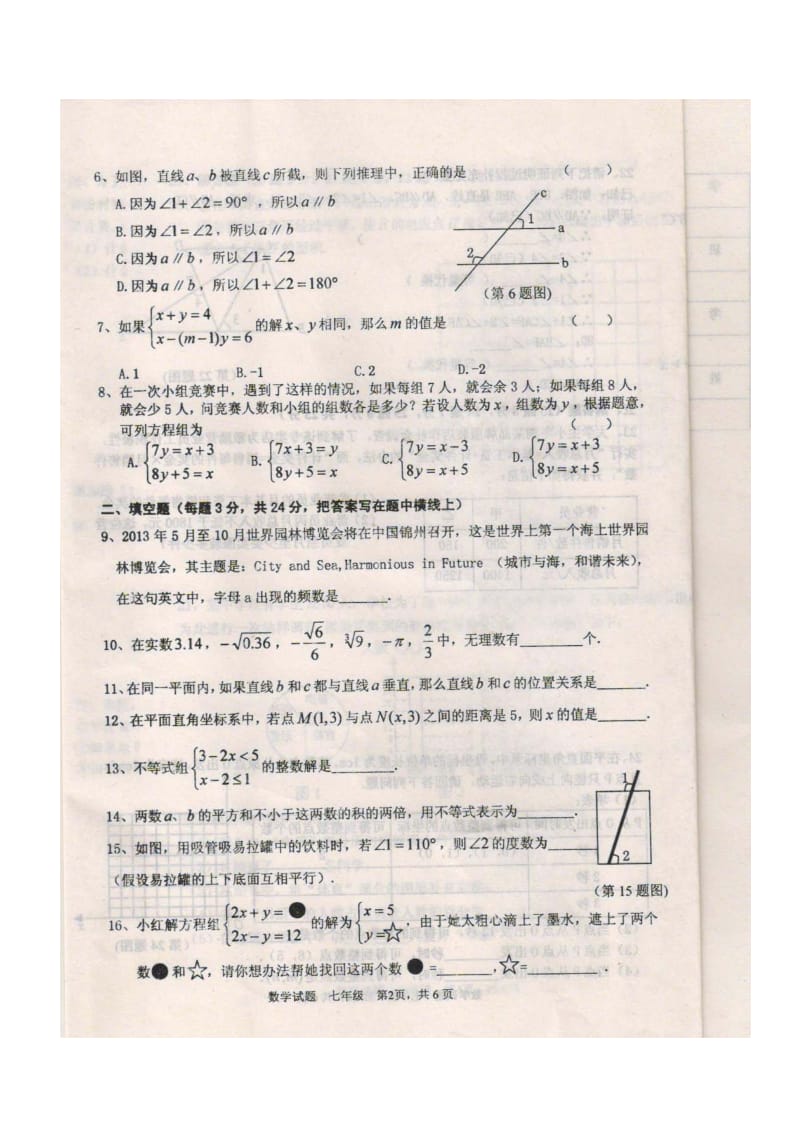 6、如图，直线a、b被直线c所截，则下列推理中，正确的是 （ ）
A.因为∠1+∠2=90°，所以a∥b
B.因为∠1=∠2，所以a∥b
C.因为a∥b，所以∠1=∠2
D.因为a∥b，所以∠1+∠2=180°
c
1
a
2
b
（第6题图）
7、如果{x+y=4 x-(m-1)y=6 的解x、y相同，那么m的值是 （ ）
A.1 B.-1 C.2 D.-2
8、在一次小组竞赛中，遇到了这样的情况，如果每组7人，就会余3人；如果每组8人，
就会少5人，问竞赛人数和小组的组数各是多少？若设人数为x，组数为y，根据题意，
可列方程组为 （ ）
A.{7y=x+3 8y+5=x B.{7x+3=y 8y-5=x C.{7y=x-3 8y=x+5 D.{7y=x+3 8y=x+5
二、填空题（每题3分，共24分，把答案写在题中横线上）
9、2013年5月至10月世界园林博览会将在中国锦州召开，这是世界上第一个海上世界园
林博览会，其主题是：City and Sea,Harmonious in Future（城市与海，和谐未来），
在这句英文中，字母a出现的频数是______.
10、在实数3.14，-√0.36，-√6/6，∛9，-π，2/3中，无理数有________个.
11、在同一平面内，如果直线b和c都与直线a垂直，那么直线b和c的位置关系是______.
12、在平面直角坐标系中，若点M(1,3)与点N(x,3)之间的距离是5，则x的值是______.
13、不等式组{3-2x<5 x-2≤1 的整数解是______.
14、两数a、b的平方和不小于这两数的积的两倍，用不等式表示为________.
15、如图，用吸管吸易拉罐中的饮料时，若∠1=110°，则∠2的度数为______
（假设易拉罐的上下底面互相平行）.
1
2
（第15题图）
16、小红解方程组{2x+y=● 2x-y=12 的解为{x=5 y=☆．由于她太粗心滴上了墨水，遮上了两个
数●和☆，请你想办法帮她找回这两个数●=______,☆=________.
数学试题 七年级 第2页，共6页